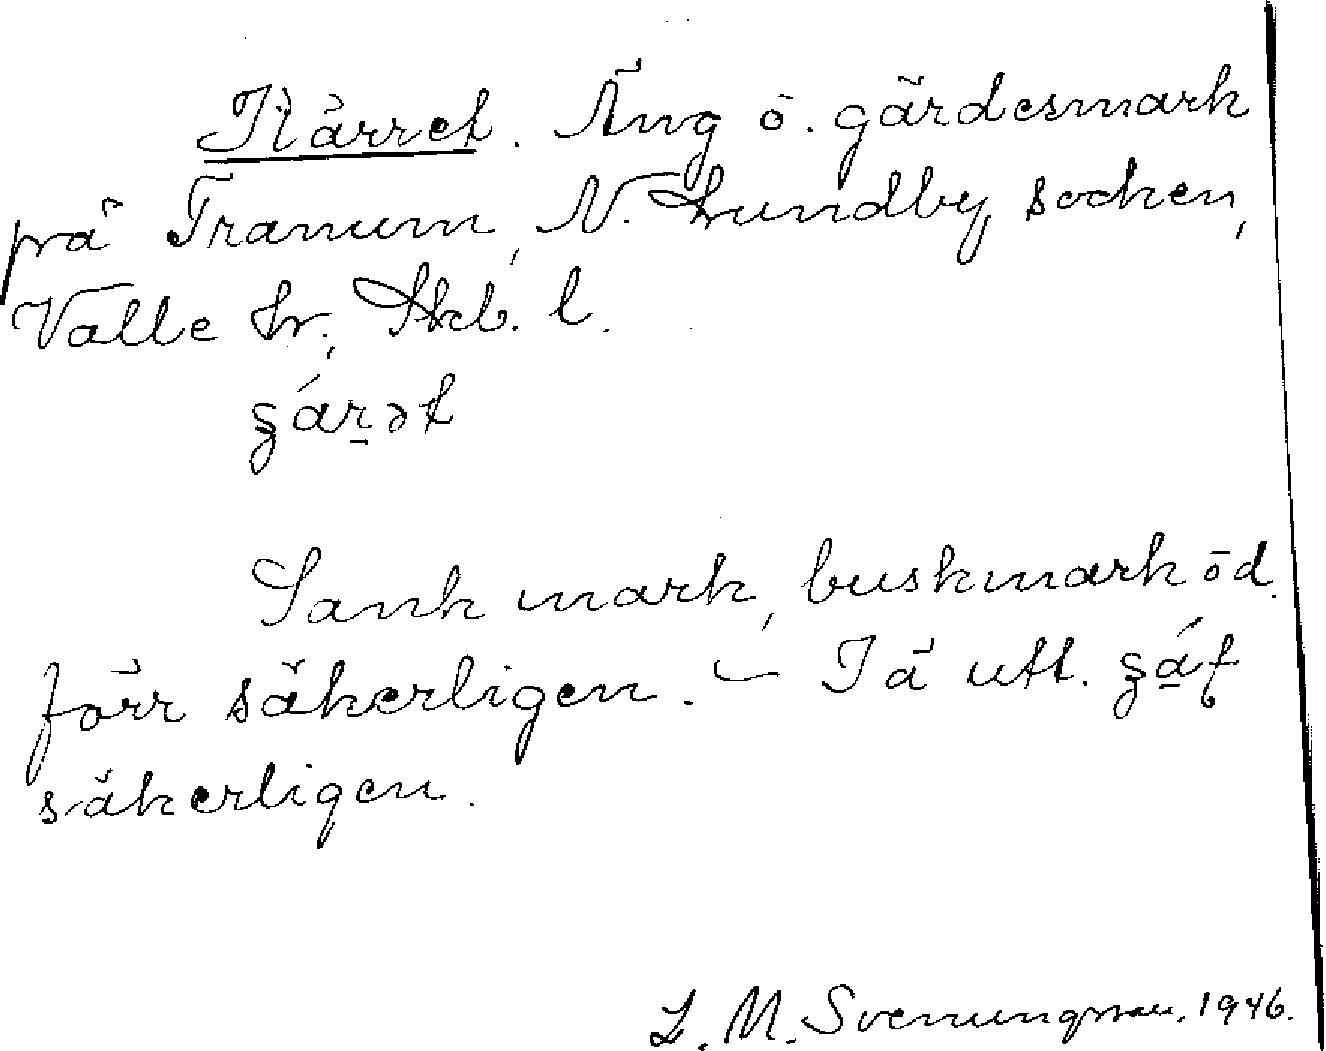 Kärret. Äng o. gärdesmark
på Tranum, N. Lundby socken,
Valle hr., Skb. l.
Sank mark, buskmark öd.
förr säkerligen. – Iä utt.
säkerligen.
L. M. Svenungsson. 1946.